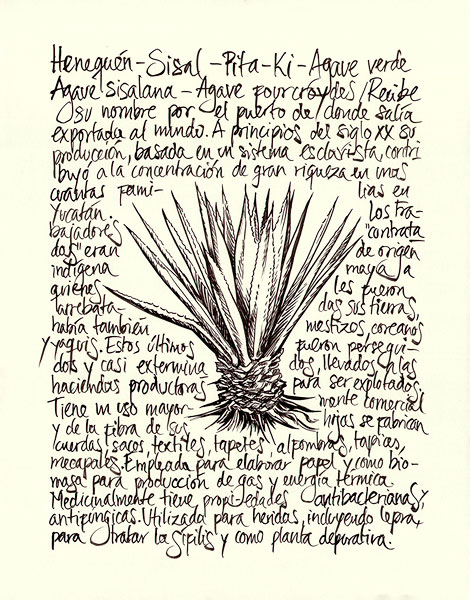 Henequén-Sisal-Pita-Ki-Agave verde
Agave Sisalana-Agave fourcroydes/Recibe
su nombre por el puerto de donde salía
exportada al mundo. A principios del siglo XX su
producción, basada en un sistema esclavista, contri
buyó a la concentración de gran riqueza en unas
cuantas fami- lias en
Yucatán. Los tra-
bajadores "contrata
dos" eran de origen
indígena maya a
quienes les fueron
arrebata- das sus tierras,
había también mestizos, coreanos
y yaquis. Estos últimos fueron persegui-
dos y casi extermina dos, llevados a las
haciendas productoras para ser explotados.
Tiene un uso mayor- mente comercial
y de la fibra de sus hijas se fabrican
cuerdas, sacos, textiles, tapetes, alfombras, tapices,
mecapales. Empleada para elaborar papel y como bio-
masa para producción de gas y energía térmica.
Medicinalmente tiene propiedades antibacterianas y,
antifúngicas. Utilizada para heridas, incluyendo lepra,
para tratar la sífilis y como planta depurativa.